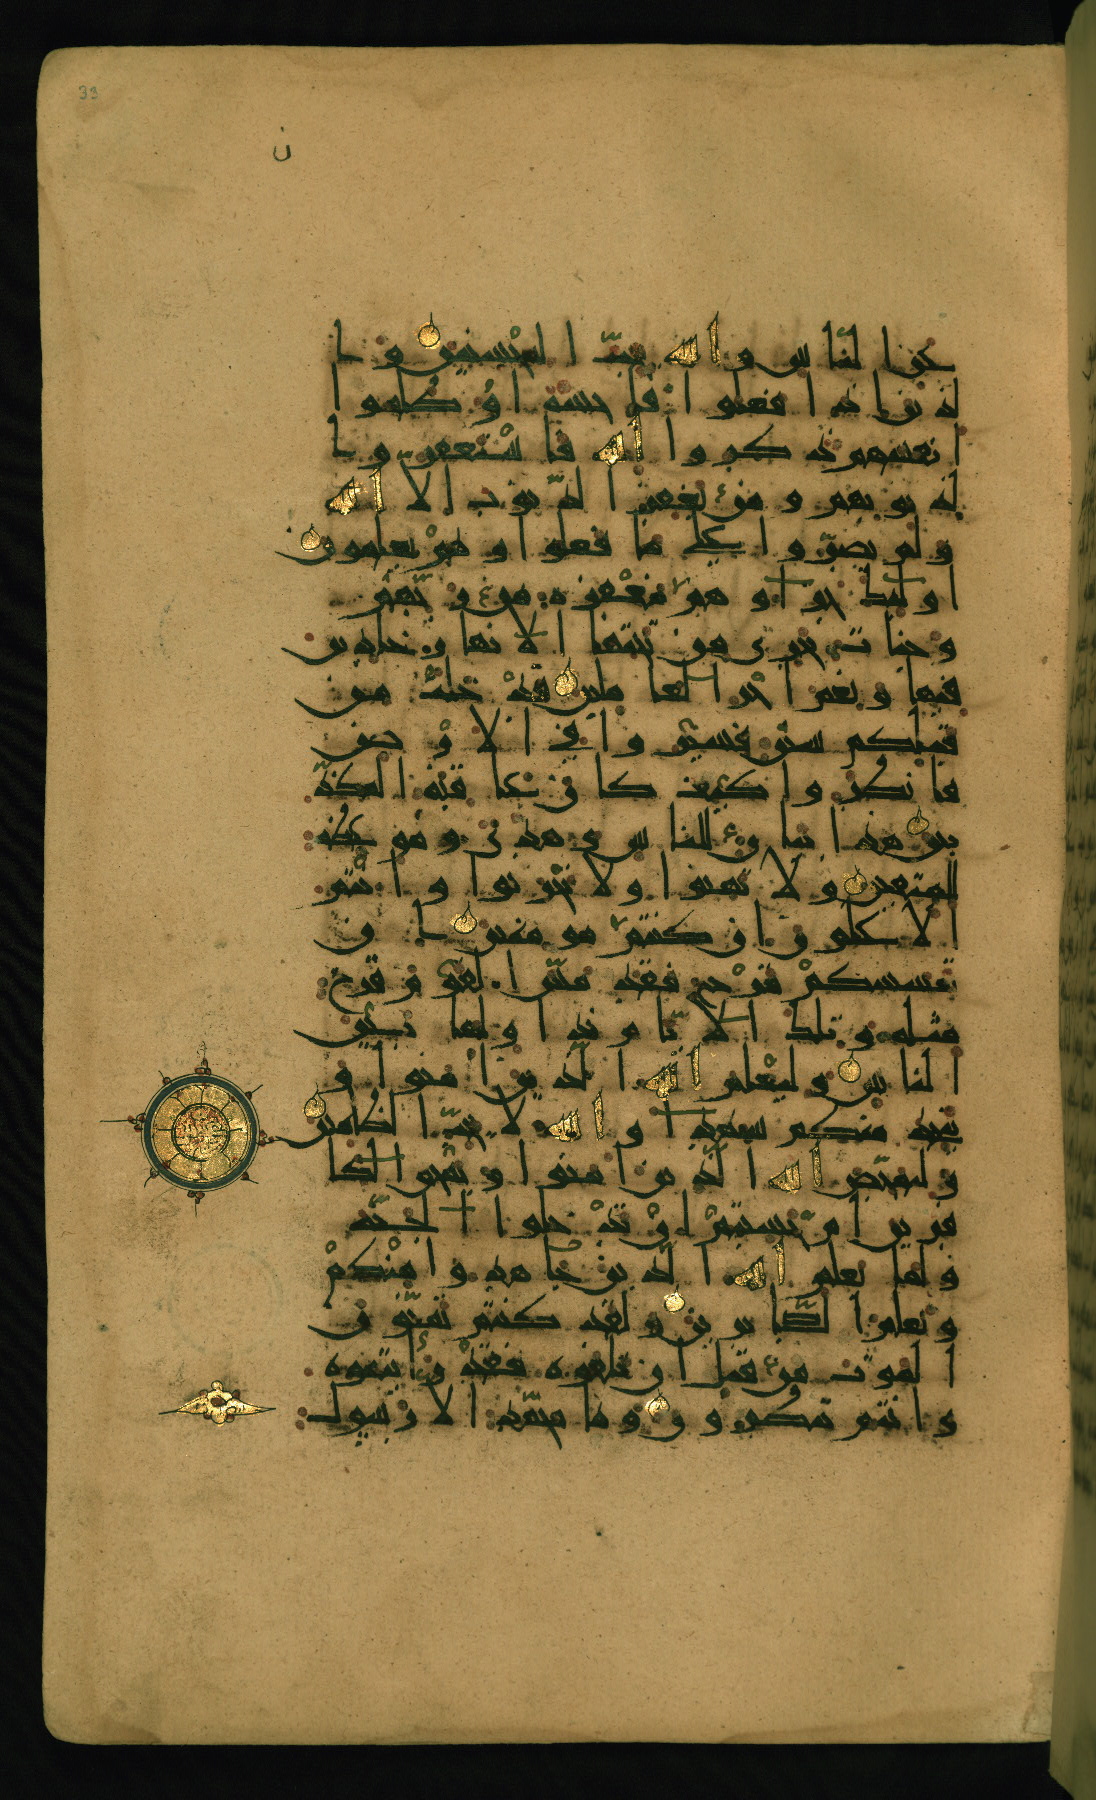 33
ن
عن الناس والله يحب المحسنين وا
لذين اذا فعلوا فاحشة او ظلموا
انفسهم ذكروا الله فاستغفروا
لذنوبهم ومن يغفر الذنوب الا الله
ولم يصروا على ما فعلوا وهم يعلمون
اولئك جزاؤهم مغفرة من ربهم
وجنات تجرى من تحتها الانهار خالدين
فيها ونعم اجر العاملين قد خلت من
قبلكم سنن فسيروا فى الارض
فانظروا كيف كان عاقبة المكذ
بين هذا بيان للناس وهدى وموعظة
للمتقين ولا تهنوا ولا تحزنوا وانتم
الاعلون ان كنتم مومنين ان
يمسسكم قرح فقد مس القوم قرح
مثله وتلك الايام نداولها بين
الناس وليعلم الله الذين امنوا و
يتخذ منكم شهدا والله لا يحب الظالمين
وليمحص الله الذين امنوا ويمحق الكا
فرين ام حسبتم ان تدخلوا الجنة
ولما يعلم الله الذين جاهدوا منكم
ويعلم الصابرين ولقد كنتم تمنون
الموت من قبل ان تلقوه فقد رايتموه
وانتم تنظرون وما محمد الا رسول